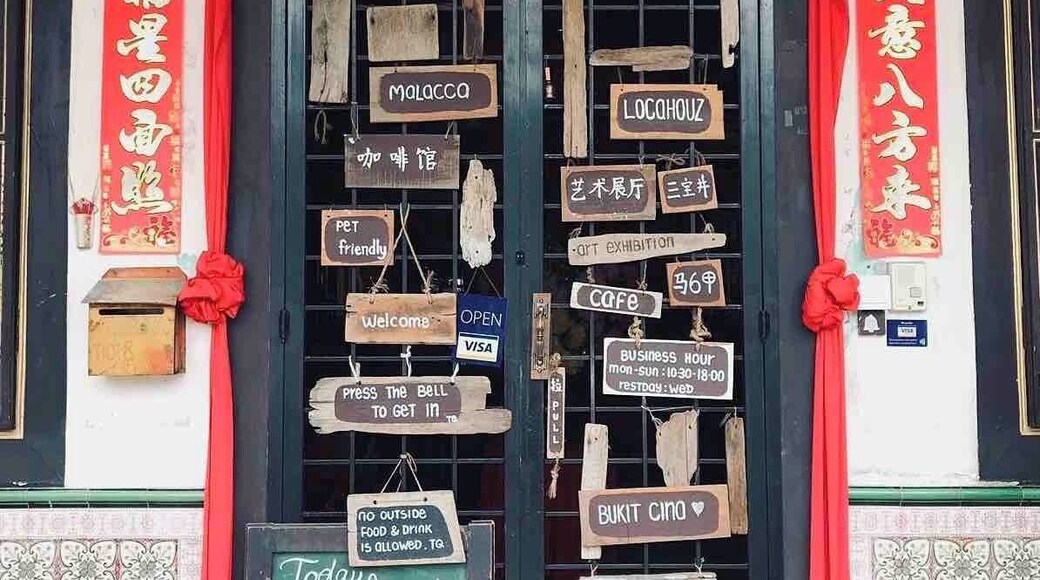 福星四面照
意八方来
福
MaLacca
咖啡馆
Pet
friendly
Welcome
OPEN
VISA
Press The Bell
To Get in
TQ
no outside
Food & Drink
is allowed. TQ
Today
LocaHouz
艺术展厅
三宝井
art exhibition
马六甲
cafe
Business Hour
mon-sun: 10:30-18:00
restday: wed
拉 PULL
Bukit Cina ♥
福
VISA